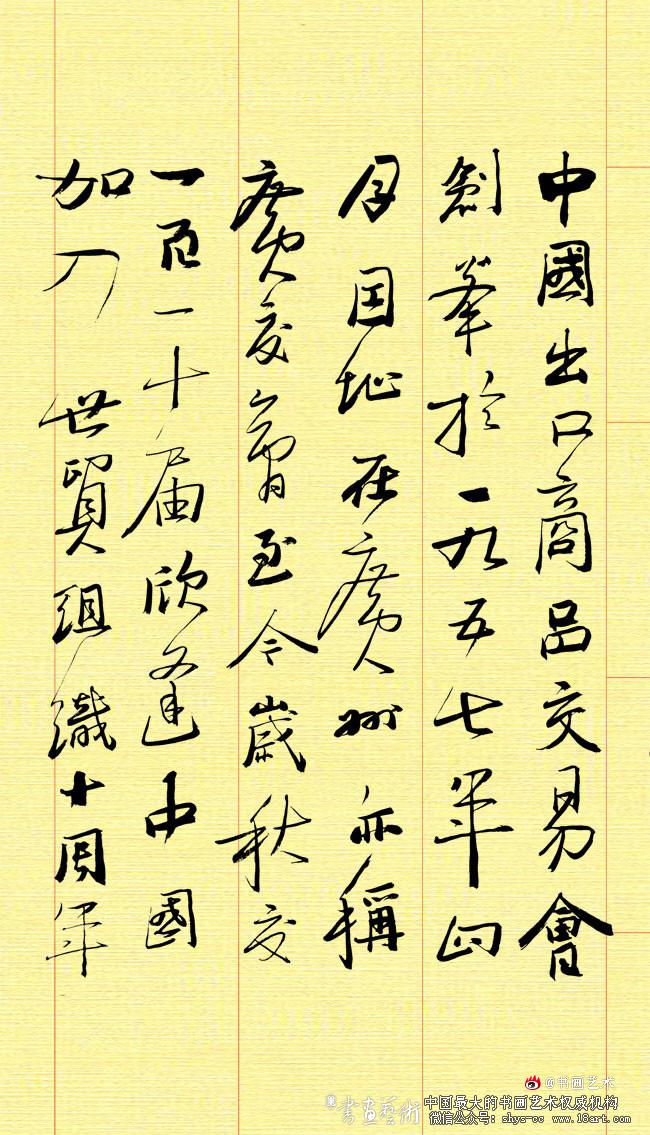 中國出口商品交易會
創辦於一九五七年四
月因址在廣州亦稱
廣交會至今歲秋交
一百一十届欣逢中國
加入世貿組織十周年
@书画艺术
書畫藝術
中国最大的书画艺术权威机构
微信公众号: shys-cc www.18art.com